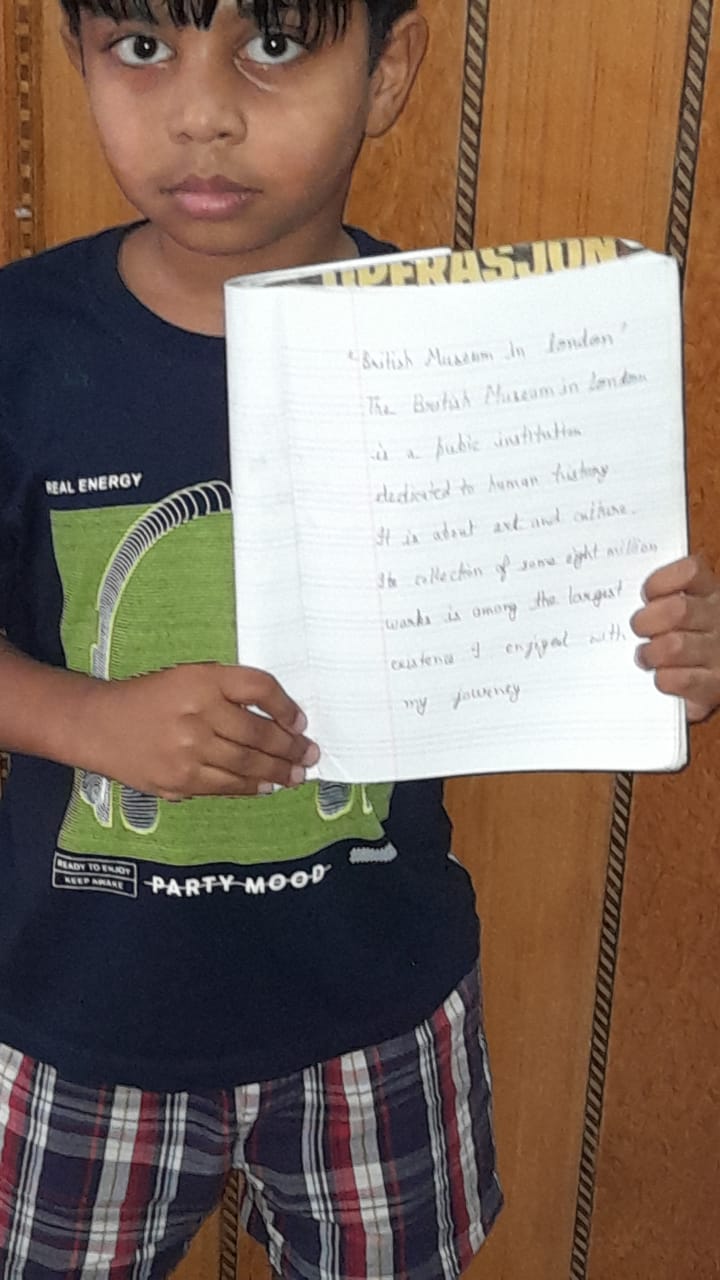 OPERASJON
"British Museum in London"
The British Museum in London
is a pubic institution
dedicated to human history
It is about art and culture.
Its collection of some eight million
works is among the largest
existence I enjoyed with
my journey
REAL ENERGY
READY TO ENJOY
KEEP AWAKE
PARTY MOOD